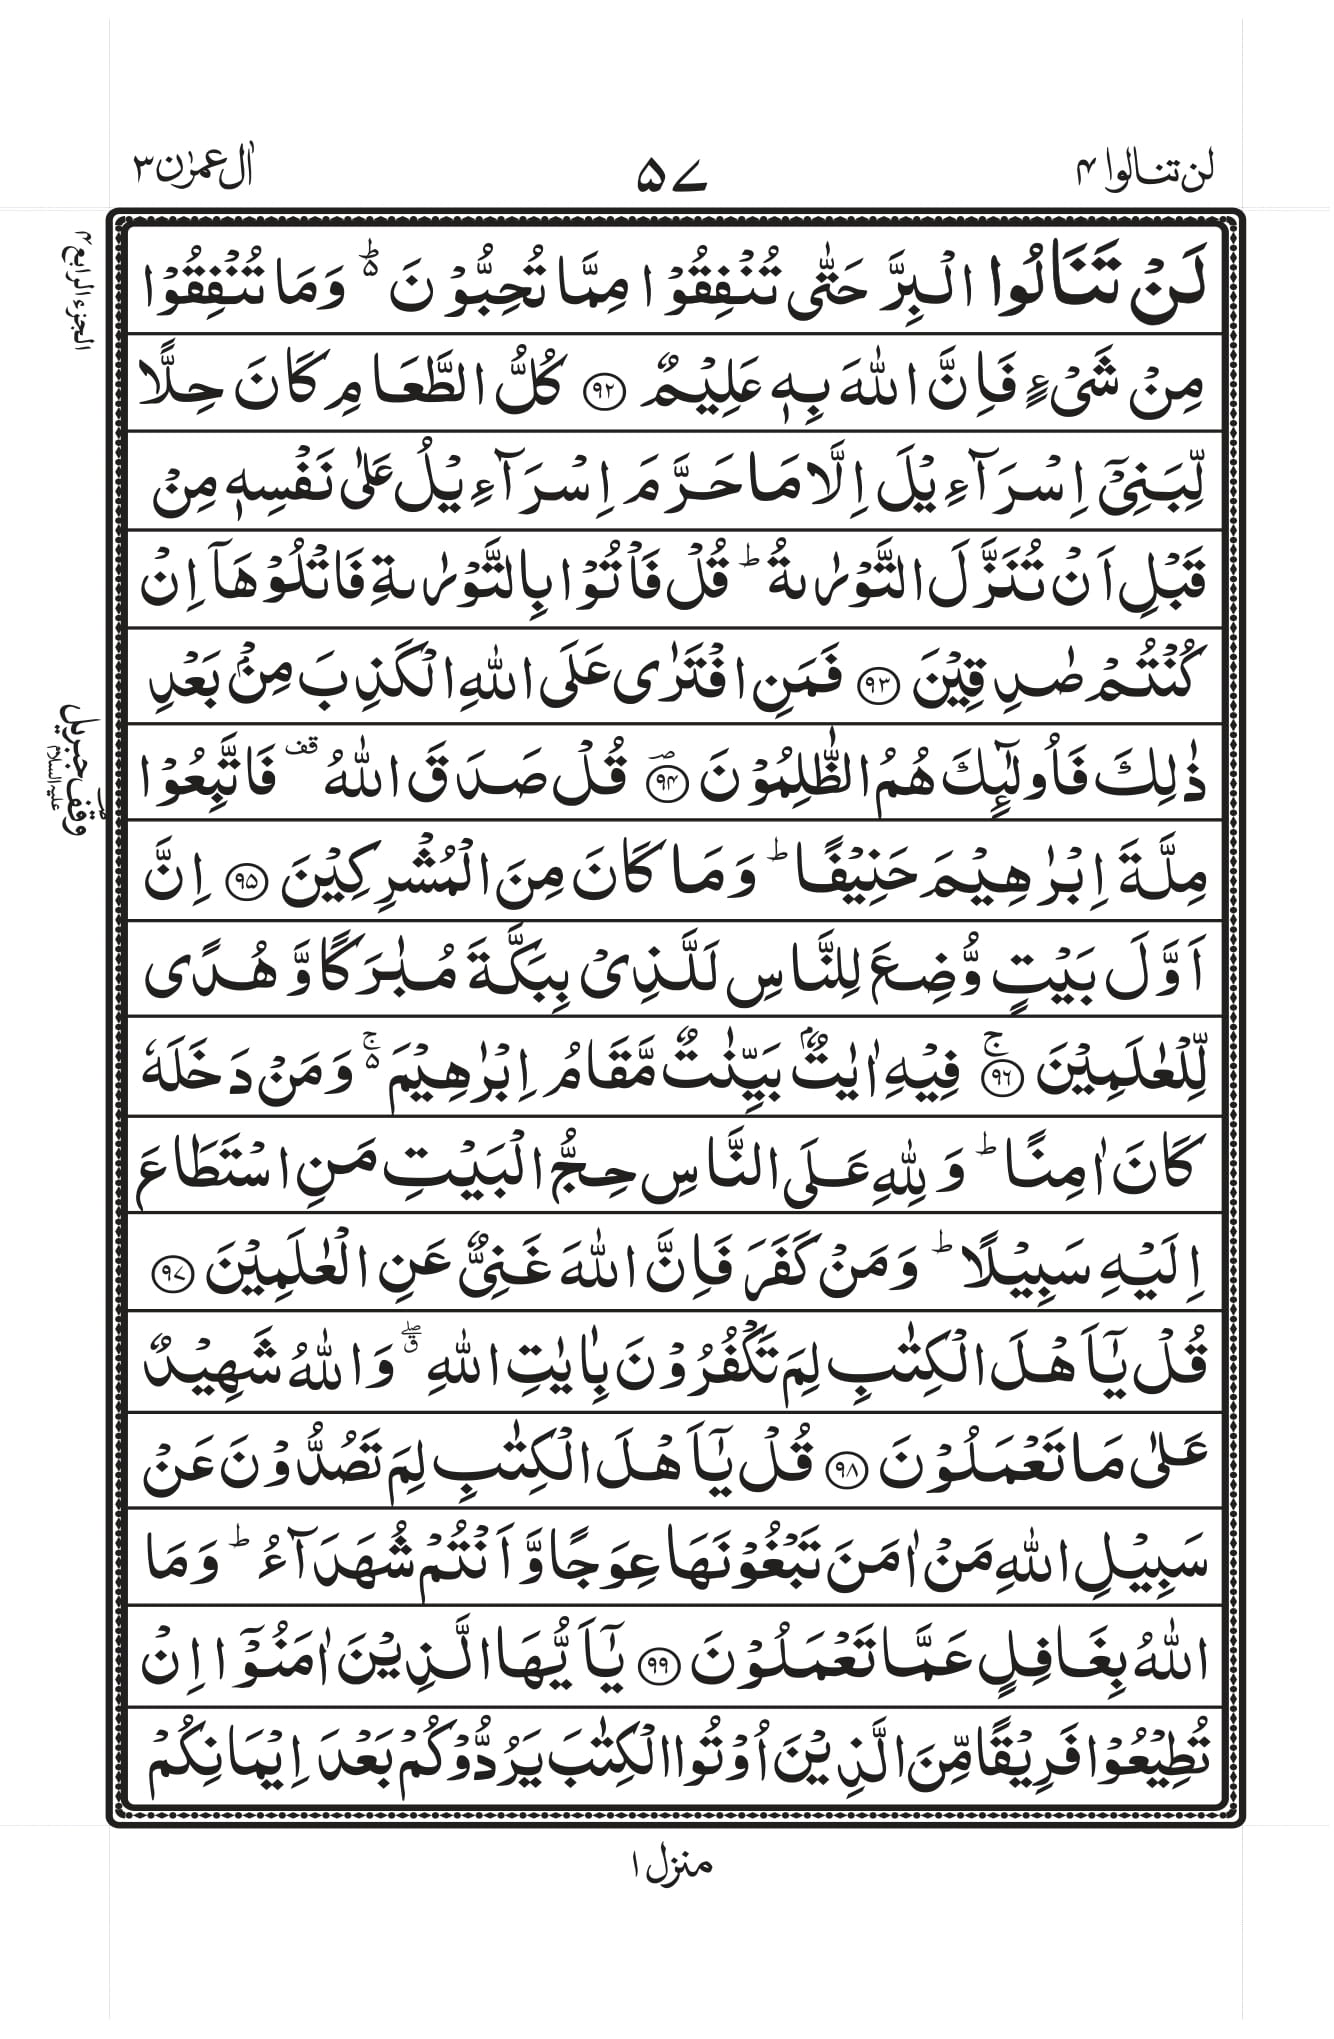 لن تنالوا ۴
۵۷
اٰل عمرٰن ۳
لَنۡ تَنَالُوا الۡبِرَّ حَتّٰى تُنۡفِقُوۡا مِمَّا تُحِبُّوۡنَ ۵ؕ وَمَا تُنۡفِقُوۡا
مِنۡ شَىۡءٍ فَاِنَّ اللّٰهَ بِهٖ عَلِيۡمٌ ﴿۹۲﴾ كُلُّ الطَّعَامِ كَانَ حِلًّا
لِّبَنِىۡۤ اِسۡرَآءِيۡلَ اِلَّا مَا حَرَّمَ اِسۡرَآءِيۡلُ عَلٰى نَفۡسِهٖ مِنۡ
قَبۡلِ اَنۡ تُنَزَّلَ التَّوۡرٰٮةُ ؕ قُلۡ فَاۡتُوۡا بِالتَّوۡرٰٮةِ فَاتۡلُوۡهَاۤ اِنۡ
كُنۡتُمۡ صٰدِقِيۡنَ ﴿۹۳﴾ فَمَنِ افۡتَرٰى عَلَى اللّٰهِ الۡكَذِبَ مِنۡۢ بَعۡدِ
ذٰلِكَ فَاُولٰٓٮِٕكَ هُمُ الظّٰلِمُوۡنَ ؔ ﴿۹۴﴾ قُلۡ صَدَقَ اللّٰهُ قف فَاتَّبِعُوۡا
مِلَّةَ اِبۡرٰهِيۡمَ حَنِيۡفًا ؕ وَمَا كَانَ مِنَ الۡمُشۡرِكِيۡنَ ﴿۹۵﴾ اِنَّ
اَوَّلَ بَيۡتٍ وُّضِعَ لِلنَّاسِ لَلَّذِىۡ بِبَكَّةَ مُبٰرَكًا وَّهُدًى
لِّلۡعٰلَمِيۡنَ ۚ ﴿۹۶﴾ فِيۡهِ اٰيٰتٌۢ بَيِّنٰتٌ مَّقَامُ اِبۡرٰهِيۡمَ ۵ۚ وَمَنۡ دَخَلَهٗ
كَانَ اٰمِنًا ؕ وَلِلّٰهِ عَلَى النَّاسِ حِجُّ الۡبَيۡتِ مَنِ اسۡتَطَاعَ
اِلَيۡهِ سَبِيۡلًا ؕ وَمَنۡ كَفَرَ فَاِنَّ اللّٰهَ غَنِىٌّ عَنِ الۡعٰلَمِيۡنَ ﴿۹۷﴾
قُلۡ يٰۤاَهۡلَ الۡكِتٰبِ لِمَ تَكۡفُرُوۡنَ بِاٰيٰتِ اللّٰهِ ۖق وَاللّٰهُ شَهِيۡدٌ
عَلٰى مَا تَعۡمَلُوۡنَ ﴿۹۸﴾ قُلۡ يٰۤاَهۡلَ الۡكِتٰبِ لِمَ تَصُدُّوۡنَ عَنۡ
سَبِيۡلِ اللّٰهِ مَنۡ اٰمَنَ تَبۡغُوۡنَهَا عِوَجًا وَّاَنۡتُمۡ شُهَدَآءُ ؕ وَمَا
اللّٰهُ بِغَافِلٍ عَمَّا تَعۡمَلُوۡنَ ﴿۹۹﴾ يٰۤاَيُّهَا الَّذِيۡنَ اٰمَنُوۡۤا اِنۡ
تُطِيۡعُوۡا فَرِيۡقًا مِّنَ الَّذِيۡنَ اُوۡتُوا الۡكِتٰبَ يَرُدُّوۡكُمۡ بَعۡدَ اِيۡمَانِكُمۡ
الجزء الرابع ۴
وقف جبريل
عليه السلام
منزل ۱